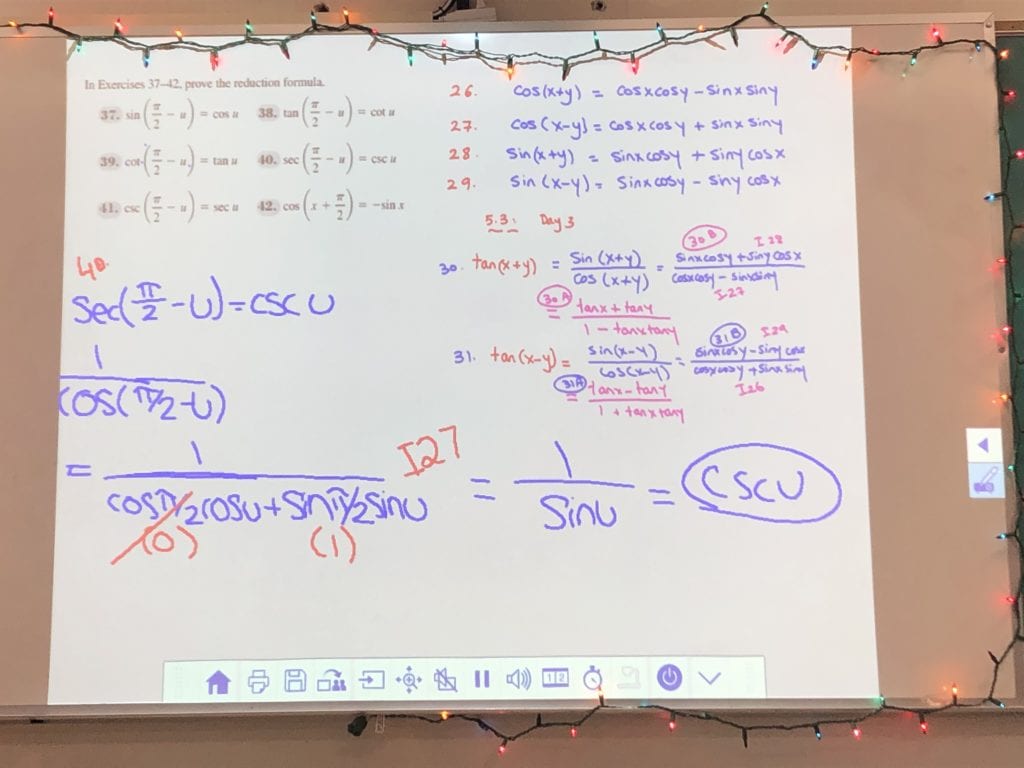 In Exercises 37–42, prove the reduction formula.
37. sin(π/2 − u) = cos u 38. tan(π/2 − u) = cot u
39. cot(π/2 − u) = tan u 40. sec(π/2 − u) = csc u
41. csc(π/2 − u) = sec u 42. cos(x + π/2) = −sin x
26. cos(x+y) = cosxcosy − sinxsiny
27. cos(x−y) = cosxcosy + sinxsiny
28. sin(x+y) = sinxcosy + sinycosx
29. sin(x−y) = sinxcosy − sinycosx
5.3: Day 3
30. tan(x+y) = sin(x+y)/cos(x+y) = (sinxcosy + sinycosx)/(cosxcosy − sinxsiny) 30B I28 I27
30A = (tanx + tany)/(1 − tanxtany)
31. tan(x−y) = sin(x−y)/cos(x−y) = (sinxcosy − sinycosx)/(cosxcosy + sinxsiny) 31B I29 I26
31A = (tanx − tany)/(1 + tanxtany)
40.
sec(π/2 − u) = csc u
1/cos(π/2 − u)
= 1/(cosπ/2cosu + sinπ/2sinu) I27 = 1/sinu = cscu
(0) (1)
1 2